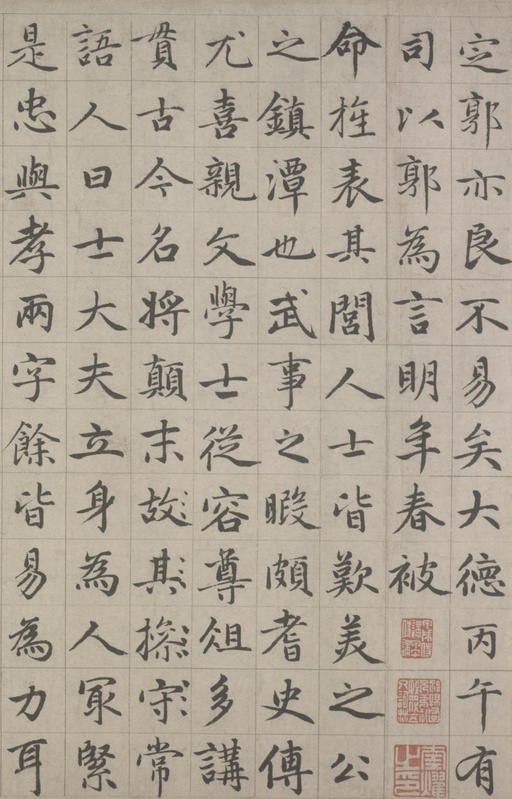 定郭亦良不易矣大德丙午有
司以郭為言明年春被
命旌表其閭人士皆歎美之公
之鎮潭也武事之暇頗耆史傳
尤喜親文學士從容尊俎多講
貫古今名將顛末故其操守常
語人曰士大夫立身為人冣緊
是忠與孝兩字餘皆易為力耳